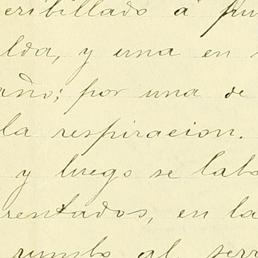 cribillado á
lda, y una en
año; por una de
la respiracion.
y luego se
rentados, en la
rumbo al